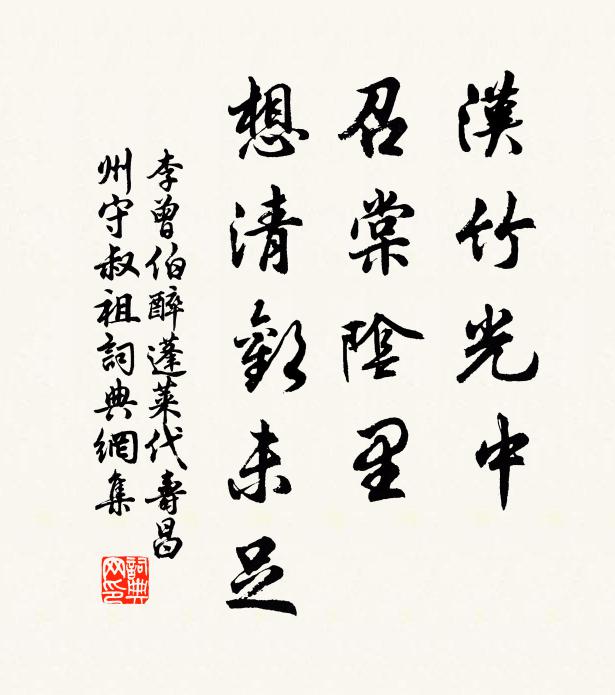 漢竹光中
召棠陰里
想清歡未足
李曾伯醉蓬萊代壽昌
州守叔祖詞典網集
詞典网印